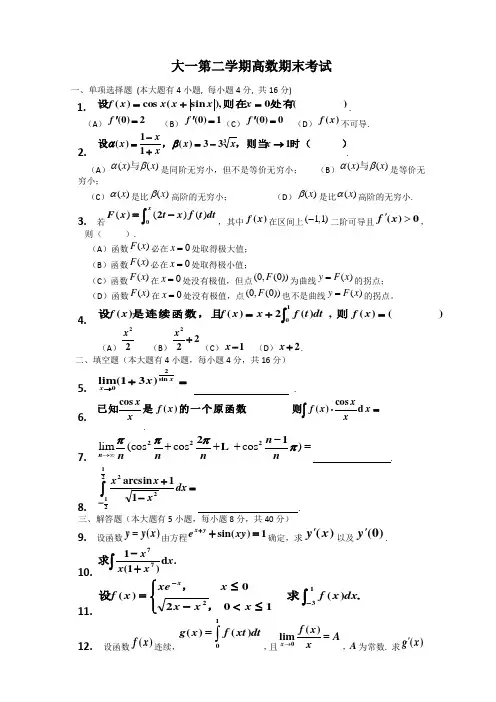 大一第二学期高数期末考试
一、单项选择题 (本大题有4小题, 每小题4分, 共16分)
1. 设f(x) = cos x(x + |sin x|), 则在x = 0处有( ).
（A）f′(0) = 2 （B）f′(0) = 1（C）f′(0) = 0 （D）f(x)不可导.
2. 设α(x) = (1 − x)/(1 + x)，β(x) = 3 − 3∛x，则当x → 1时（ ）.
（A）α(x)与β(x)是同阶无穷小，但不是等价无穷小； （B）α(x)与β(x)是等价无
穷小；
（C）α(x)是比β(x)高阶的无穷小； （D）β(x)是比α(x)高阶的无穷小.
3. 若 F(x) = ∫₀ˣ (2t − x)f(t)dt，其中f(x)在区间上(−1,1)二阶可导且f′(x) > 0，
则（ ）.
（A）函数F(x)必在x = 0处取得极大值；
（B）函数F(x)必在x = 0处取得极小值；
（C）函数F(x)在x = 0处没有极值，但点(0, F(0))为曲线y = F(x)的拐点；
（D）函数F(x)在x = 0处没有极值，点(0, F(0))也不是曲线y = F(x)的拐点。
4. 设f(x)是连续函数，且f(x) = x + 2∫₀¹ f(t)dt , 则f(x) = ( )
（A）x²/2 （B）x²/2 + 2（C）x − 1 （D）x + 2.
二、填空题（本大题有4小题，每小题4分，共16分）
5. lim(x→0) (1 + 3x)^(2/sin x) = .
6. 已知 cos x/x 是f(x)的一个原函数 则∫f(x)·(cos x/x)dx =
.
7. lim(n→∞) π/n (cos² π/n + cos² 2π/n + L + cos² (n−1)/n π) = .
8. ∫_{−1/2}^{1/2} (x² arcsin x + 1)/√(1 − x²) dx = .
三、解答题（本大题有5小题，每小题8分，共40分）
9. 设函数y = y(x)由方程e^(x+y) + sin(xy) = 1确定，求y′(x)以及y′(0).
10. 求∫ (1 − x⁷)/(x(1 + x⁷)) dx.
11. 设f(x) = { xe^(−x)， x ≤ 0 ; √(2x − x²)，0 < x ≤ 1 求∫₋₃¹ f(x)dx.
12. 设函数f(x)连续，g(x) = ∫₀¹ f(xt)dt，且lim(x→0) f(x)/x = A，A为常数. 求g′(x)